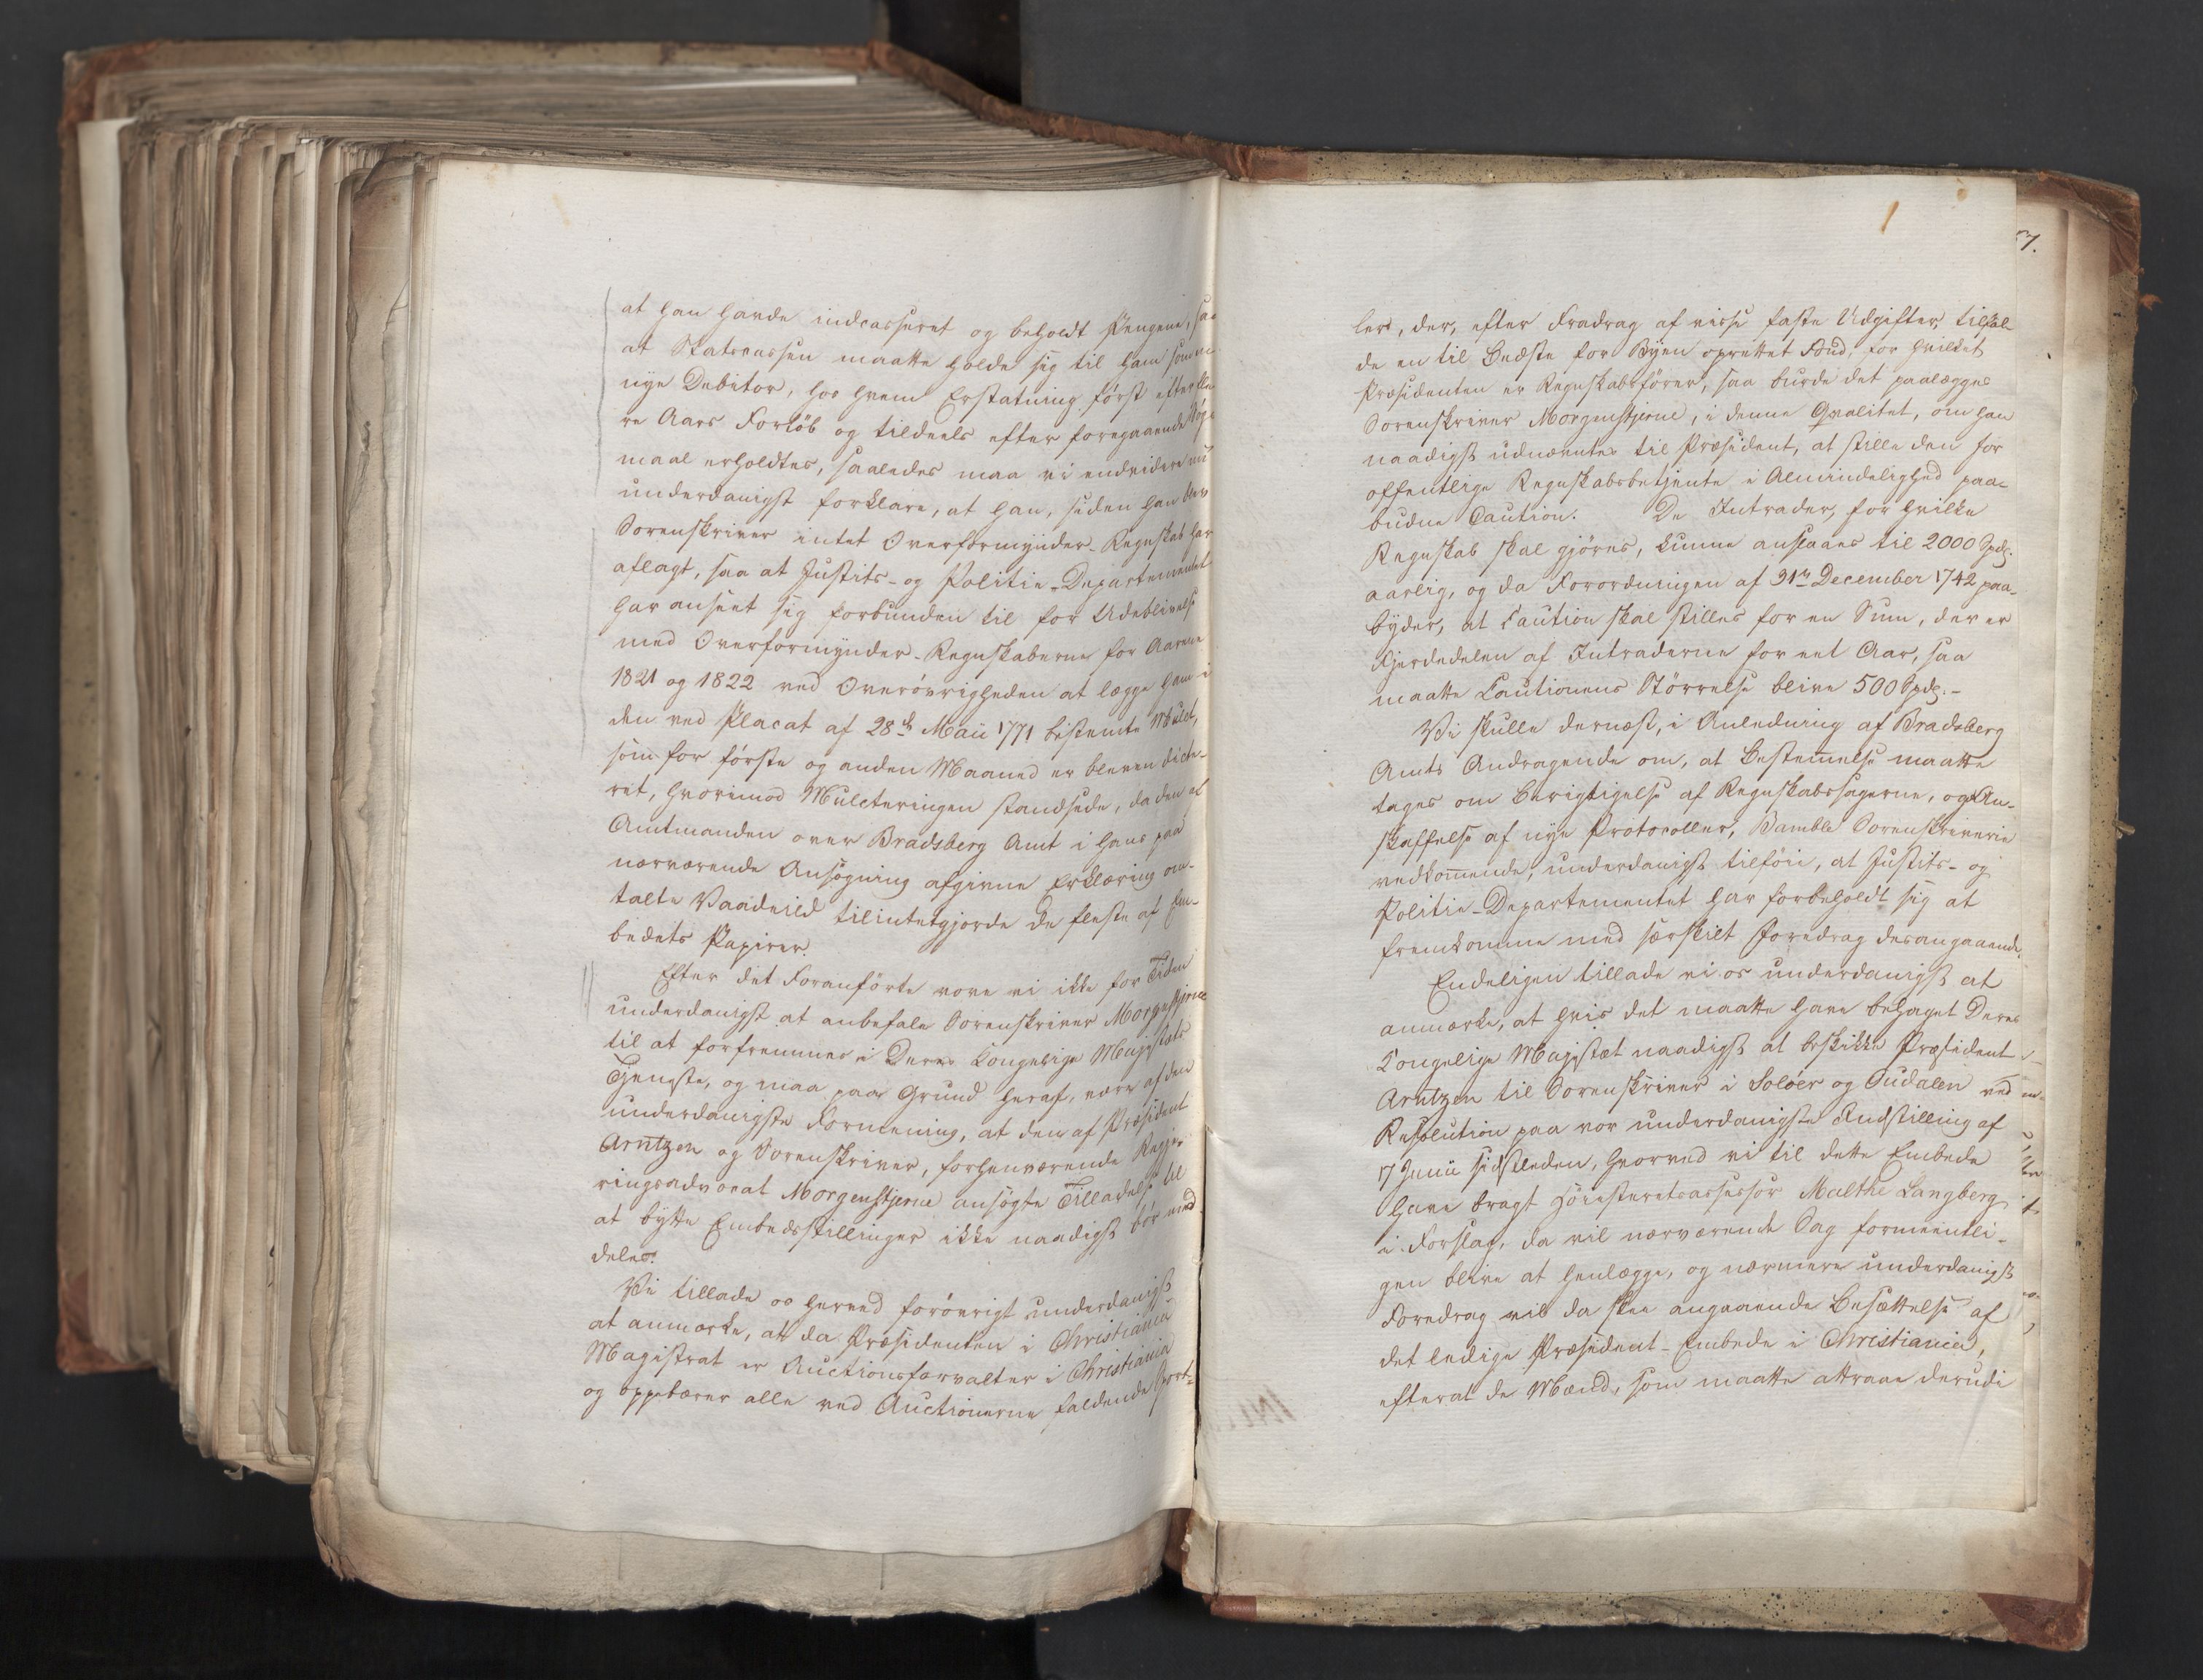 at han havde indcasseret og beholdt Pengene, saa
at Statscassen maatte holde sig til ham som
nye Debitor, hos hvem Erstatning først efter fle
re Aars Forløb og tildeels efter foregaaende Søgs
maal erholdtes, saaledes maa vi endvidere
underdanigst forklare, at han, siden han blev
Sorenskriver intet Overformynder-Regnskab har
aflagt, saa at Justits- og Politie-Departementet
har anseet sig forbunden til for Udeblivelse
med Overformynder-Regnskaberne for Aarene
1821 og 1822 ved Overøvrigheden at lægge ham i
den ved Placat af 28de Maii 1771 bestemte Mulct,
som for første og anden Maaned er bleven dicte-
ret, hvorimod Mulcteringen standsede, da den af
Amtmanden over Bradsberg Amt i hans paa
nærværende Ansøgning afgivne Erklæring om-
talte Vaadeild tilintetgjorde de fleste af Em-
bedets Papirer.
Efter det Foranførte vove vi ikke for Tiden
underdanigst at anbefale Sorenskriver Morgenstjerne
til at forfremmes i Deres Kongelige Majestæts
Tjeneste, og maa paa Grund heraf, være af den
underdanigste Formening, at den af Præsident
Arntzen og Sorenskriver, forhenværende Regje-
ringsadvocat Morgenstjerne ansøgte Tilladelse til
at bytte Embedsstillinger ikke naadigst bør med
deles.
Vi tillade os herved forøvrigt underdanigst
at anmærke, at da Præsidenten i Christiania
Magistrat er Auctionsforvalter i Christiania
og oppebærer alle ved Auctionerne faldende Sport-
7.
ler, der, efter Fradrag af visse faste Udgifter, tilfal
de en til Bedste for Byen oprettet Fond, for hvilket
Præsidenten er Regnskabsfører, saa burde det paalægges
Sorenskriver Morgenstjerne, i denne Qvalitet, om han
naadigst udnævntes til Præsident, at stille den for
offentlige Regnskabsbetjente i Almindelighed paa-
budne Caution. De Intrader, for hvilke
Regnskab skal gjøres, kunne ansaaes til 2000 Spd.
aarlig, og da Forordningen af 31te December 1742 paa-
byder, at Caution skal stilles for en Sum, der er
Fjerdedelen af Intraderne for eet Aar, saa
maatte Cautionens Størrelse blive 500 Spd.-
Vi skulle dernæst, i Anledning af Bradsberg
Amts Andragende om, at Bestemmelse maatte
tages om Berigtigelse af Regnskabssagerne, og An-
skaffelse af nye Protocoller, Bamble Sorenskriverie
vedkommende, underdanigst tilføie, at Justits- og
Politie-Departementet har forbeholdt sig at
fremkomme med særskilt Foredrag desangaaende.
Endeligen tillade vi os underdanigst at
anmærke, at hvis det maatte have behaget Deres
Kongelige Majestæt naadigst at beskikke Præsident
Arntzen til Sorenskriver i Soløer og Oudalen ved
Resolution paa vor underdanigste Indstilling af
17 Junii sidstleden, hvorved vi til dette Embede
have bragt Høiesteretsassessor Malthe Langberg
i Forslag, da vil nærværende Sag formeentli-
gen blive at henlægge, og nærmere underdanigst
Foredrag vil da skee angaaende Besættelse af
det ledige Præsident-Embede i Christiania,
efterat de Mænd, som maatte attraae derudi